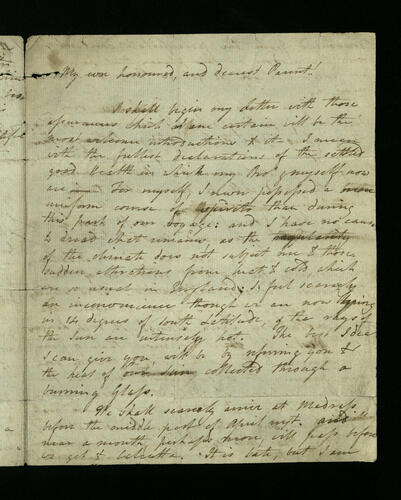 My ever honoured, and dearest Parent!
I shall begin my letter with those
assurances which I am certain will be the
most welcome introductions to it. I mean
with the fullest declarations of the settled
good health in which my & myself now
are — For myself, I never possessed a more
uniform course of than during
this part of our voyage: and I have no cause
to dread what remains, as the regularity
of the climate does not subject me to those
sudden alterations from heat & cold, which
are so usual in England. I feel scarcely
an inconvenience though we are now lying
in 14 degrees of South Latitude, & the rays of
the Sun are intensely hot. The best Idea
I can give you, will be by referring you to
the heat of our Sun collected through a
burning Glass.
We shall scarcely arrive at Madrass
before the middle part of April next. and
near a month, perhaps more, will pass before
we get to Calcutta. It is late, but I am